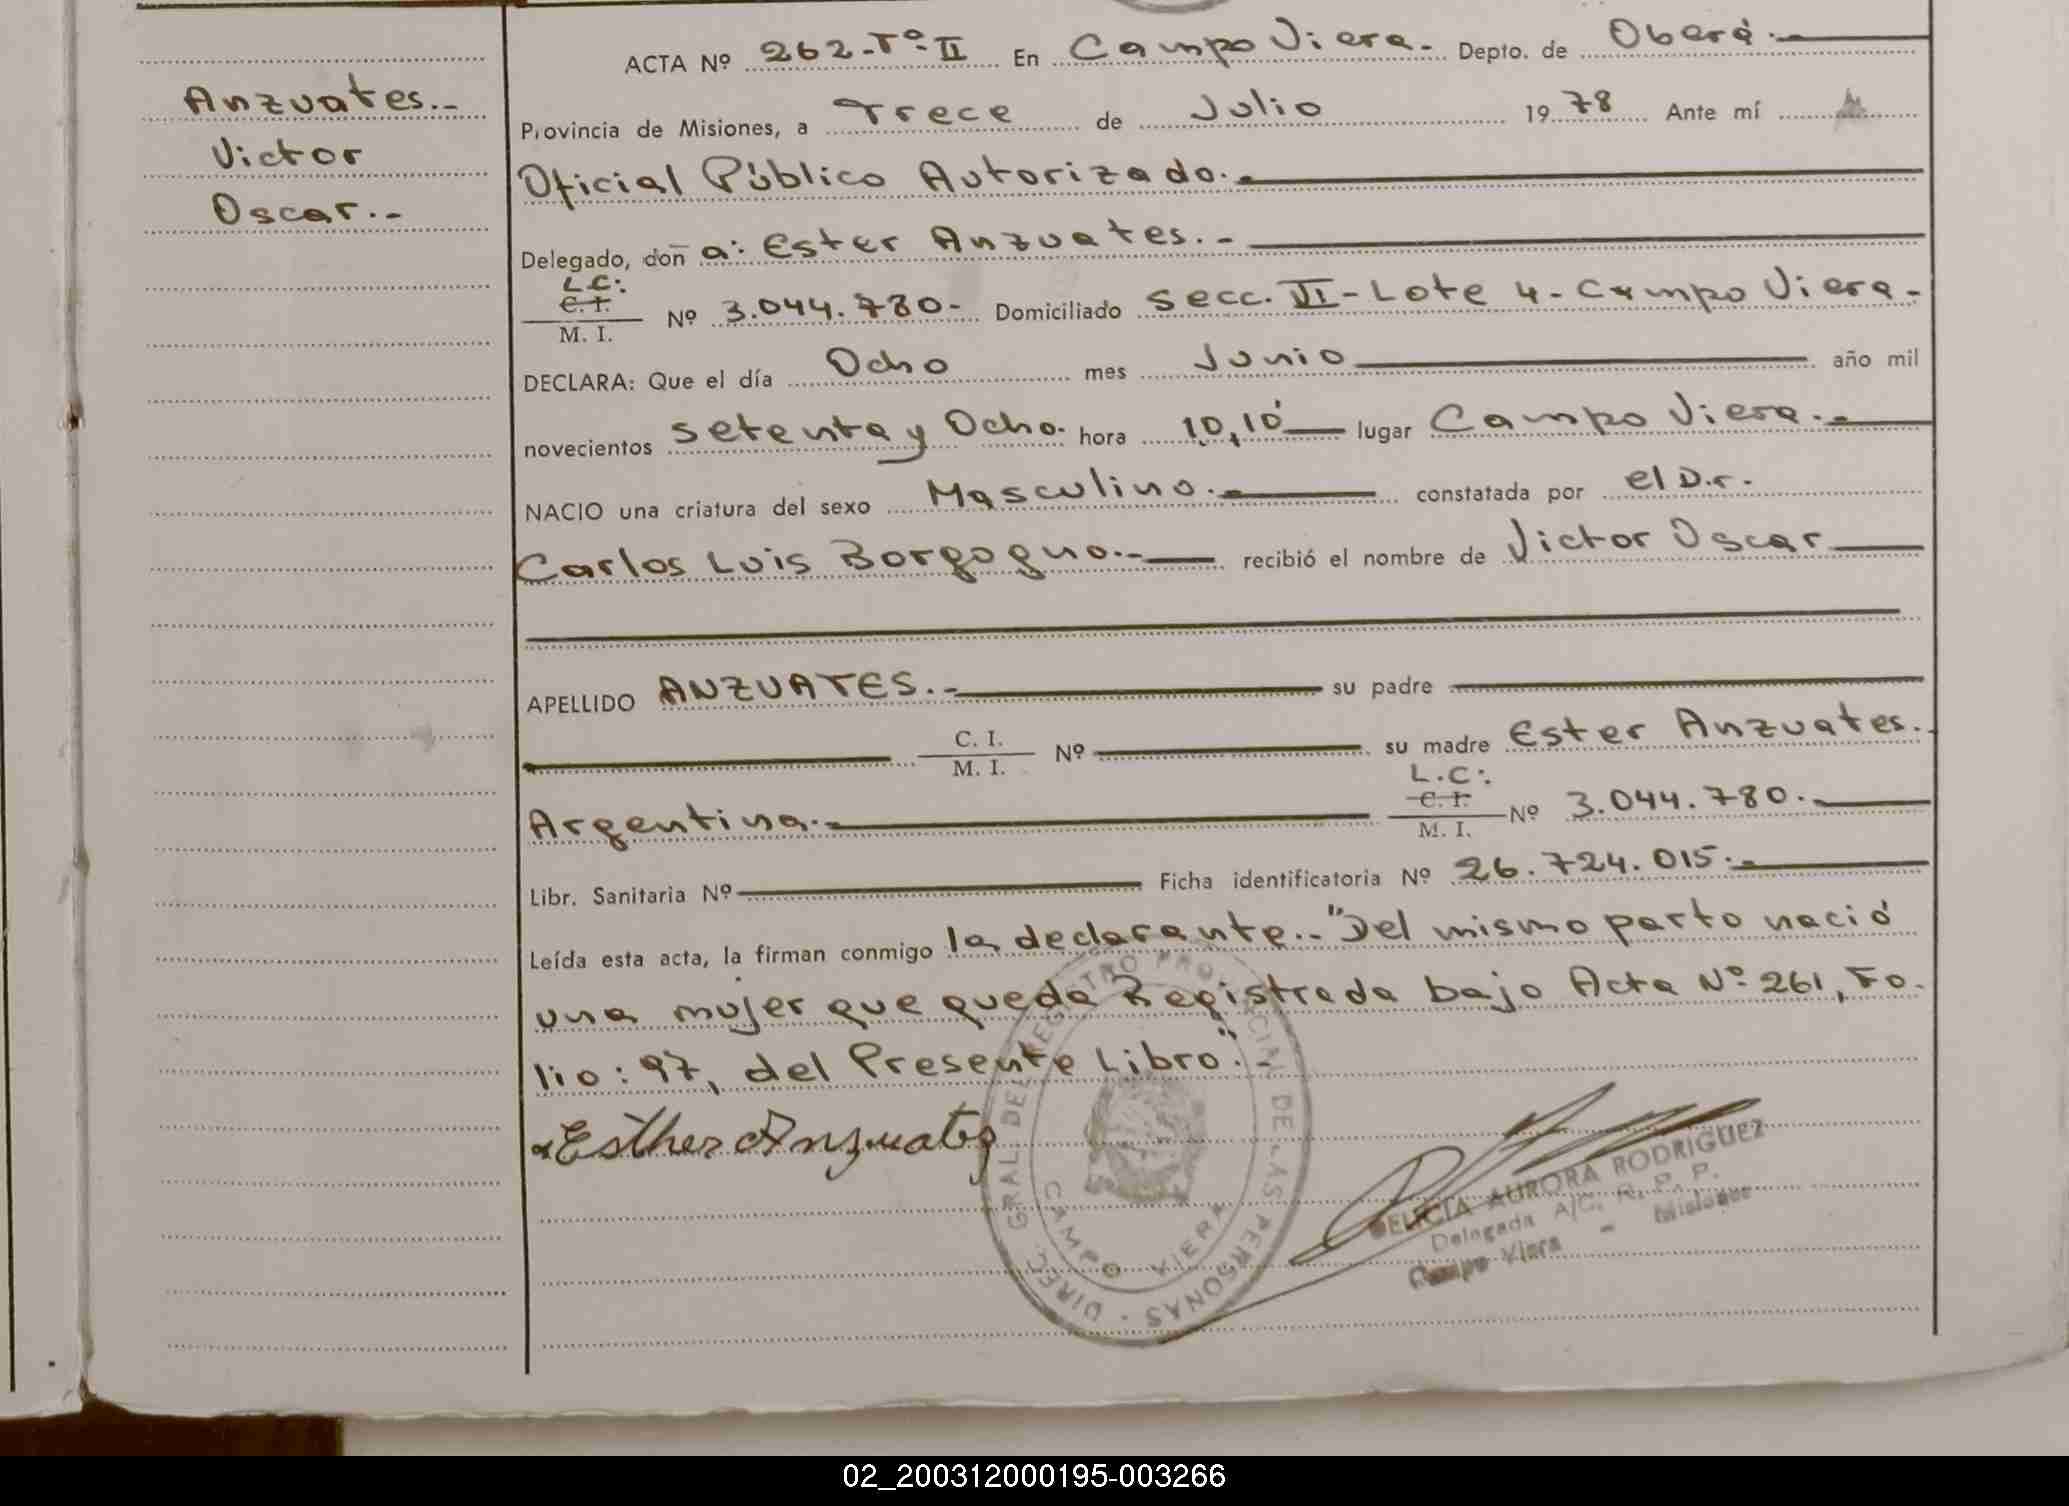 Anzuates.-
Victor
Oscar.-
ACTA Nº 262-Tº-II En Campo Viera.- Depto. de Oberá.-
Provincia de Misiones, a Trece de Julio 1978 Ante mí
Oficial Público Autorizado.-
Delegado, don a: Ester Anzuates.-
L.C:
C. I.
M. I. Nº 3.044.780- Domiciliado Secc. VI-Lote 4-Campo Viera-
DECLARA: Que el día Ocho mes Junio año mil
novecientos setenta y Ocho. hora 10,10' lugar Campo Viera.-
NACIO una criatura del sexo Masculino.- constatada por el D.r.
Carlos Luis Borgogno.- recibió el nombre de Victor Oscar
APELLIDO ANZUATES.- su padre
C. I.
M. I. Nº su madre Ester Anzuates.
L.C:
C. I.
Argentina.- M. I. Nº 3.044.780.-
Libr. Sanitaria Nº Ficha identificatoria Nº 26.724.015.-
Leída esta acta, la firman conmigo la declarante.- "Del mismo parto nació
una mujer que queda Registrada bajo Acta Nº 261, Fo.
lio: 97, del Presente Libro".-
Esther Anzuates
DIREC. GRAL. DEL REGISTRO PROVINCIAL DE LAS PERSONAS
CAMPO VIERA
DELICIA AURORA RODRIGUEZ
Delegada A/C. R. P. P.
Campo Viera - Misiones
02_200312000195-003266